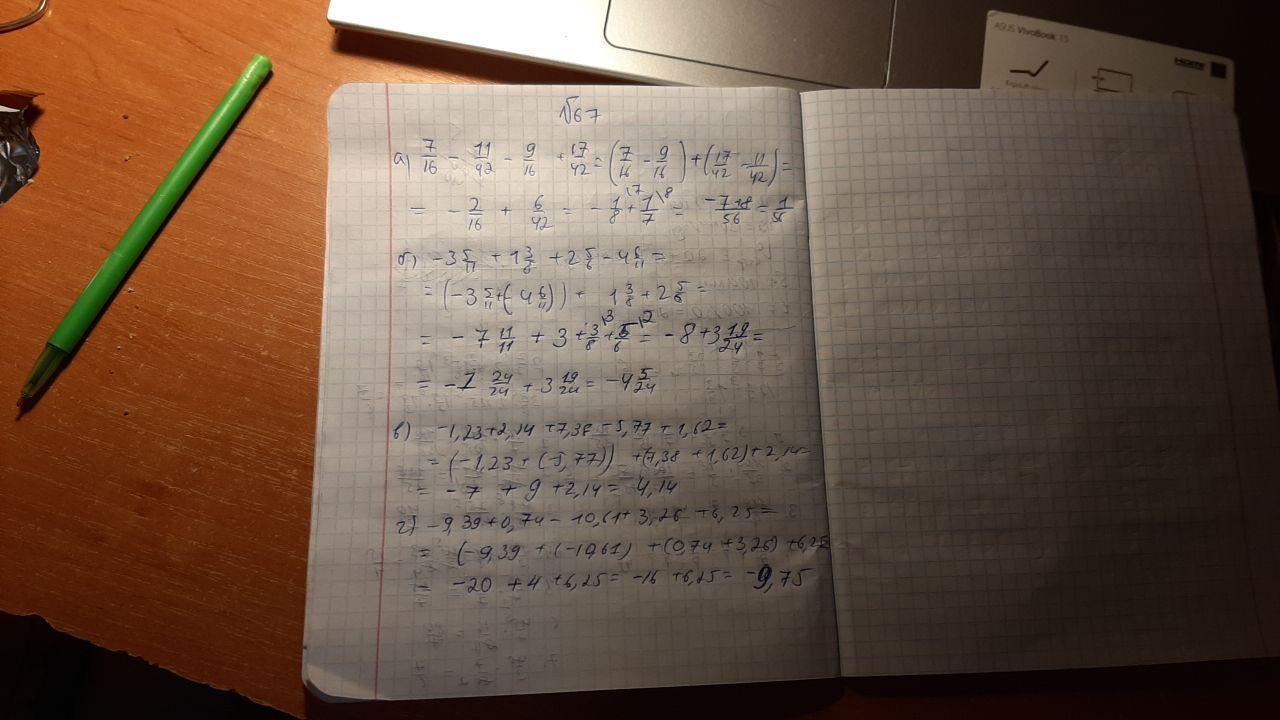 ASUS VivoBook 15
HDMI
№67
а) 7/16 - 11/42 - 9/16 + 17/42 = (7/16 - 9/16) + (17/42 - 11/42) =
= - 2/16 + 6/42 = - 1/8 \7 + 1/7 \8 = -7+8/56 = 1/56
б) -3 5/11 + 1 3/8 + 2 5/6 - 4 6/11 =
= (-3 5/11 + (-4 6/11)) + 1 3/8 + 2 5/6 =
= - 7 11/11 + 3 + 3/8 \3 + 5/6 \2 = - 8 + 3 19/24 =
= -7 24/24 + 3 19/24 = -4 5/24
в) -1,23 + 2,14 + 7,38 - 5,77 + 1,62 =
= (-1,23 + (-5,77)) + (7,38 + 1,62) + 2,14 =
= - 7 + 9 + 2,14 = 4,14
г) -9,39 + 0,74 - 10,61 + 3,26 + 6,25 =
= (-9,39 + (-10,61) + (0,74 + 3,26) + 6,25
= -20 + 4 + 6,25 = -16 + 6,25 = -9,75